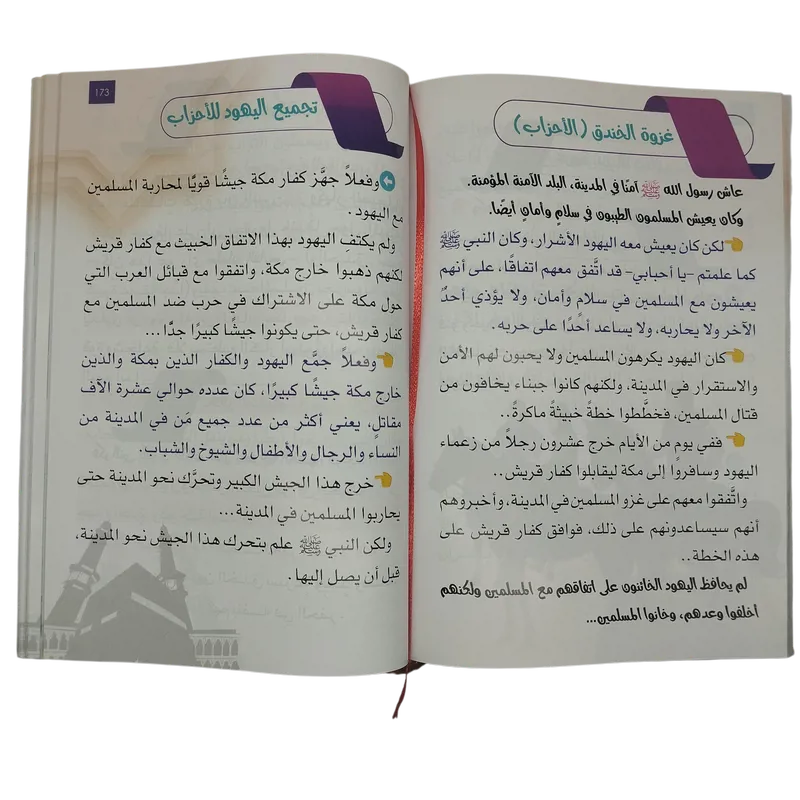 غزوة الخندق (الأحزاب)
عاش رسول الله ﷺ آمنًا في المدينة، البلد الآمنة المؤمنة.
وكان يعيش المسلمون الطيبون في سلامٍ وأمانٍ أيضًا.
لكن كان يعيش معه اليهود الأشرار، وكان النبي ﷺ
كما علمتم -يا أحبابي- قد اتَّفق معهم اتفاقًا، على أنهم
يعيشون مع المسلمين في سلامٍ وأمان، ولا يؤذي أحدٌ
الآخر ولا يحاربه، ولا يساعد أحدًا على حربه.
كان اليهود يكرهون المسلمين ولا يحبون لهم الأمن
والاستقرار في المدينة، ولكنهم كانوا جبناء يخافون من
قتال المسلمين، فخطَّطوا خطةً خبيثةً ماكرةً..
ففي يوم من الأيام خرج عشرون رجلاً من زعماء
اليهود وسافروا إلى مكة ليقابلوا كفار قريش..
واتَّفقوا معهم على غزو المسلمين في المدينة، وأخبروهم
أنهم سيساعدونهم على ذلك، فوافق كفار قريش على
هذه الخطة..
لم يحافظ اليهود الخائنون على اتفاقهم مع المسلمين ولكنهم
أخلفوا وعدهم، وخانوا المسلمين...
173
تجميع اليهود للأحزاب
وفعلاً جهَّز كفار مكة جيشًا قويًّا لمحاربة المسلمين
مع اليهود.
ولم يكتفِ اليهود بهذا الاتفاق الخبيث مع كفار قريش
لكنهم ذهبوا خارج مكة، واتفقوا مع قبائل العرب التي
حول مكة على الاشتراك في حرب ضد المسلمين مع
كفار قريش، حتى يكونوا جيشًا كبيرًا جدًّا...
وفعلاً جمَّع اليهود والكفار الذين بمكة والذين
خارج مكة جيشًا كبيرًا، كان عدده حوالي عشرة آلاف
مقاتل، يعني أكثر من عدد جميع مَن في المدينة من
النساء والرجال والأطفال والشيوخ والشباب.
خرج هذا الجيش الكبير وتحرَّك نحو المدينة حتى
يحاربوا المسلمين في المدينة...
ولكن النبي ﷺ علم بتحرك هذا الجيش نحو المدينة،
قبل أن يصل إليها.